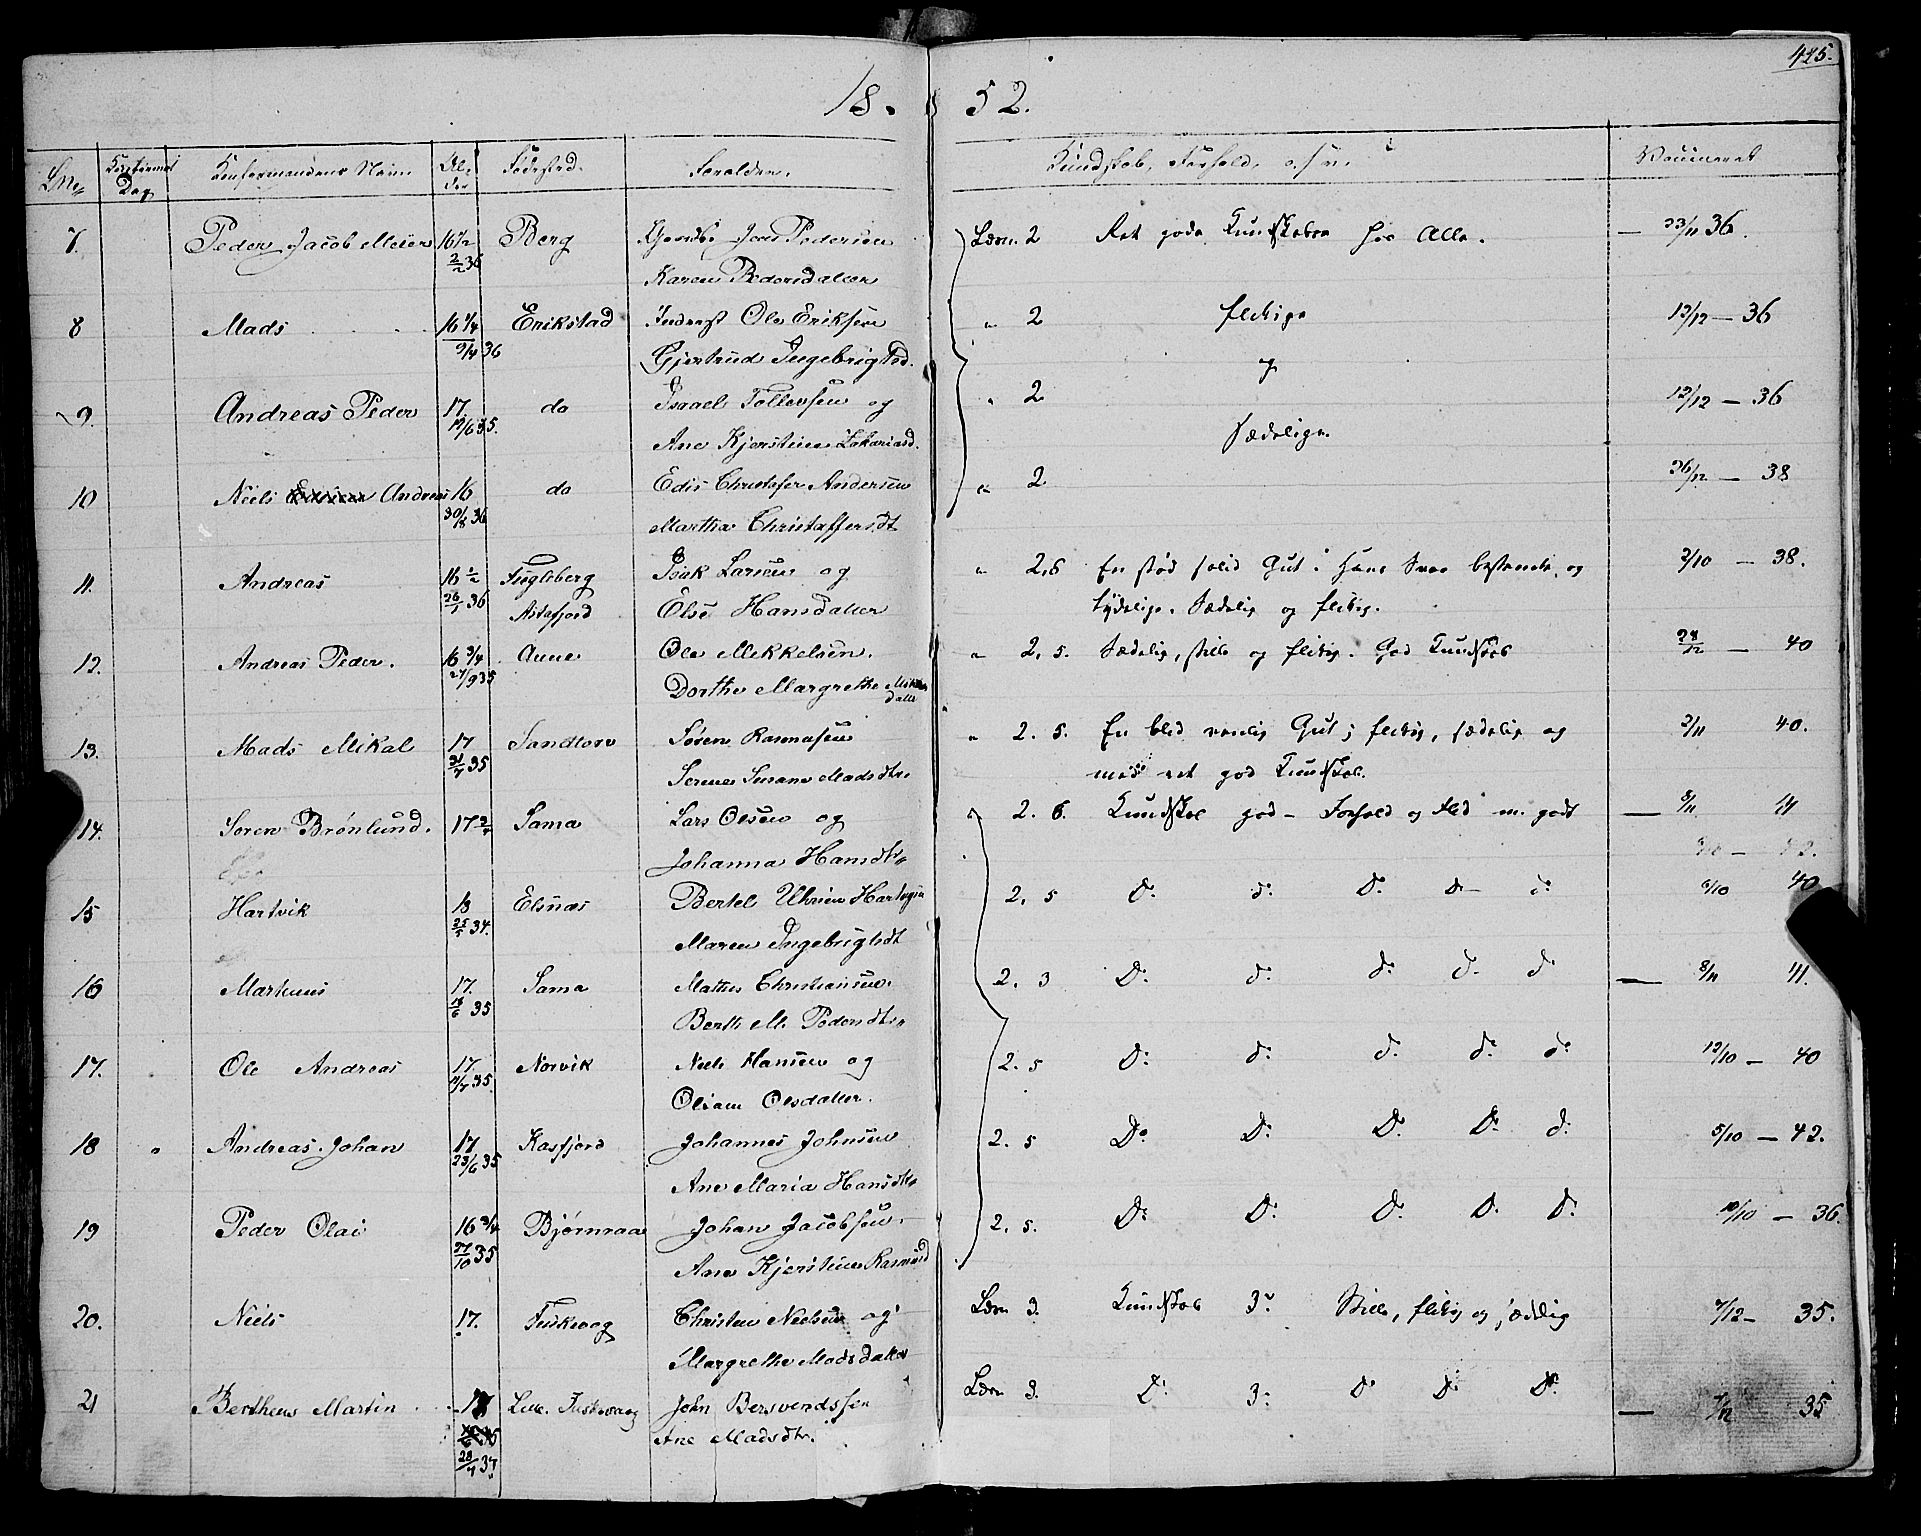 425.
18. 52.
Confirmanders Navn. Al-der Fødested. Forældre. Kundskab, Forhold, o.s.v. Vaccineret
Dag
7. Peder Jacob Meier 16 1/2 Berg Jens Pedersen Læsn. 2 Ret gode Kundskaber hos Alle. — 23/11 36.
2/2 36 Karen Pedersdatter
8 Mads 16 1/4 Erikstad Ole Eriksen " 2 flitige 12/12 — 36
9/4 36 Gjertrud Ingebrigtsd. og
9. Andreas Peder 17. do Israel Tollevsen og " 2 12/12 — 36
12/6 35. Ane Kjerstine Zakariasd. sædelige.
10 Niels Andreas 16 do Christofer Andersen " 2 26/12 — 38
30/8 36 Martha Christoffersdt
11. Andreas 16 1/2 Fugleberg Isak Larsen og " 2,6 En stød solid Gut. Hans Svar bestemte og 2/10 — 38.
26/1 36 Astafjord Else Hansdatter tydelige. Sædelig og flitig.
12. Andreas Peder. 16 3/4 Aune Ole Mikkelsen. " 2. 5. Sædelig, stille og flitig. God Kundskab — 40
27/9 35 Dorthe Margrethe
13. Mads Mikal 17 Sandtorv Søren Rasmusen " 2. 5. En blid venlig Gut; flitig, sædelig og 2/11 40.
35 Serine Susane Madsdtr. med ret god Kundskab.
14. Søren Brønlund. 17 2/4 Sama Lars Olsen og " 2. 6. Kundskab god — Forhold og Flid m. godt — 8/11 41
Johanna Hansdtr
15 Hartvik 18 Elsnæs Bertel 2. 5 D: d: D: D d: 6/10 40
25/5 34. Maren Ingebrigtsdt
16 Markuus 17. Sama Mathis Christiansen. 2. 3 D: d: d: d: d: — 8/11 41.
18/6 35 Berth M. Pedersdtr
17. Ole Andreas 17. Norvik Niels Hansen og 2. 5 D: d: d: d: d: 12/10 — 40
11/7 35. Olsdatter.
18 " Andreas Johan 17 Kasfjord Johannes Johnsen 2. 5 D: D: D: D: d: 5/10 — 42.
23/6 35 Ane Maria Hansdtr
19 Peder Olai 16 3/4 Bjørnraa Johan Jacobsen. 2. 5. D: D: D: D: D: 10/10 — 36.
27/10 35 Ane Kjerstine Rasmusd
20. Niels 17. Fuskevaag Christen Nielsen og Læsn 3. Kundskab 3: Stille, flitig og sædelig 7/12 — 35.
Margrethe Madsdatter
21 Bertheus Martin 17 Lille Fuskevaag John Bersvendssen Læsn 3. D: 3: D: D: D: — 7/12 35
28/7 34 Ane Madsdtr.